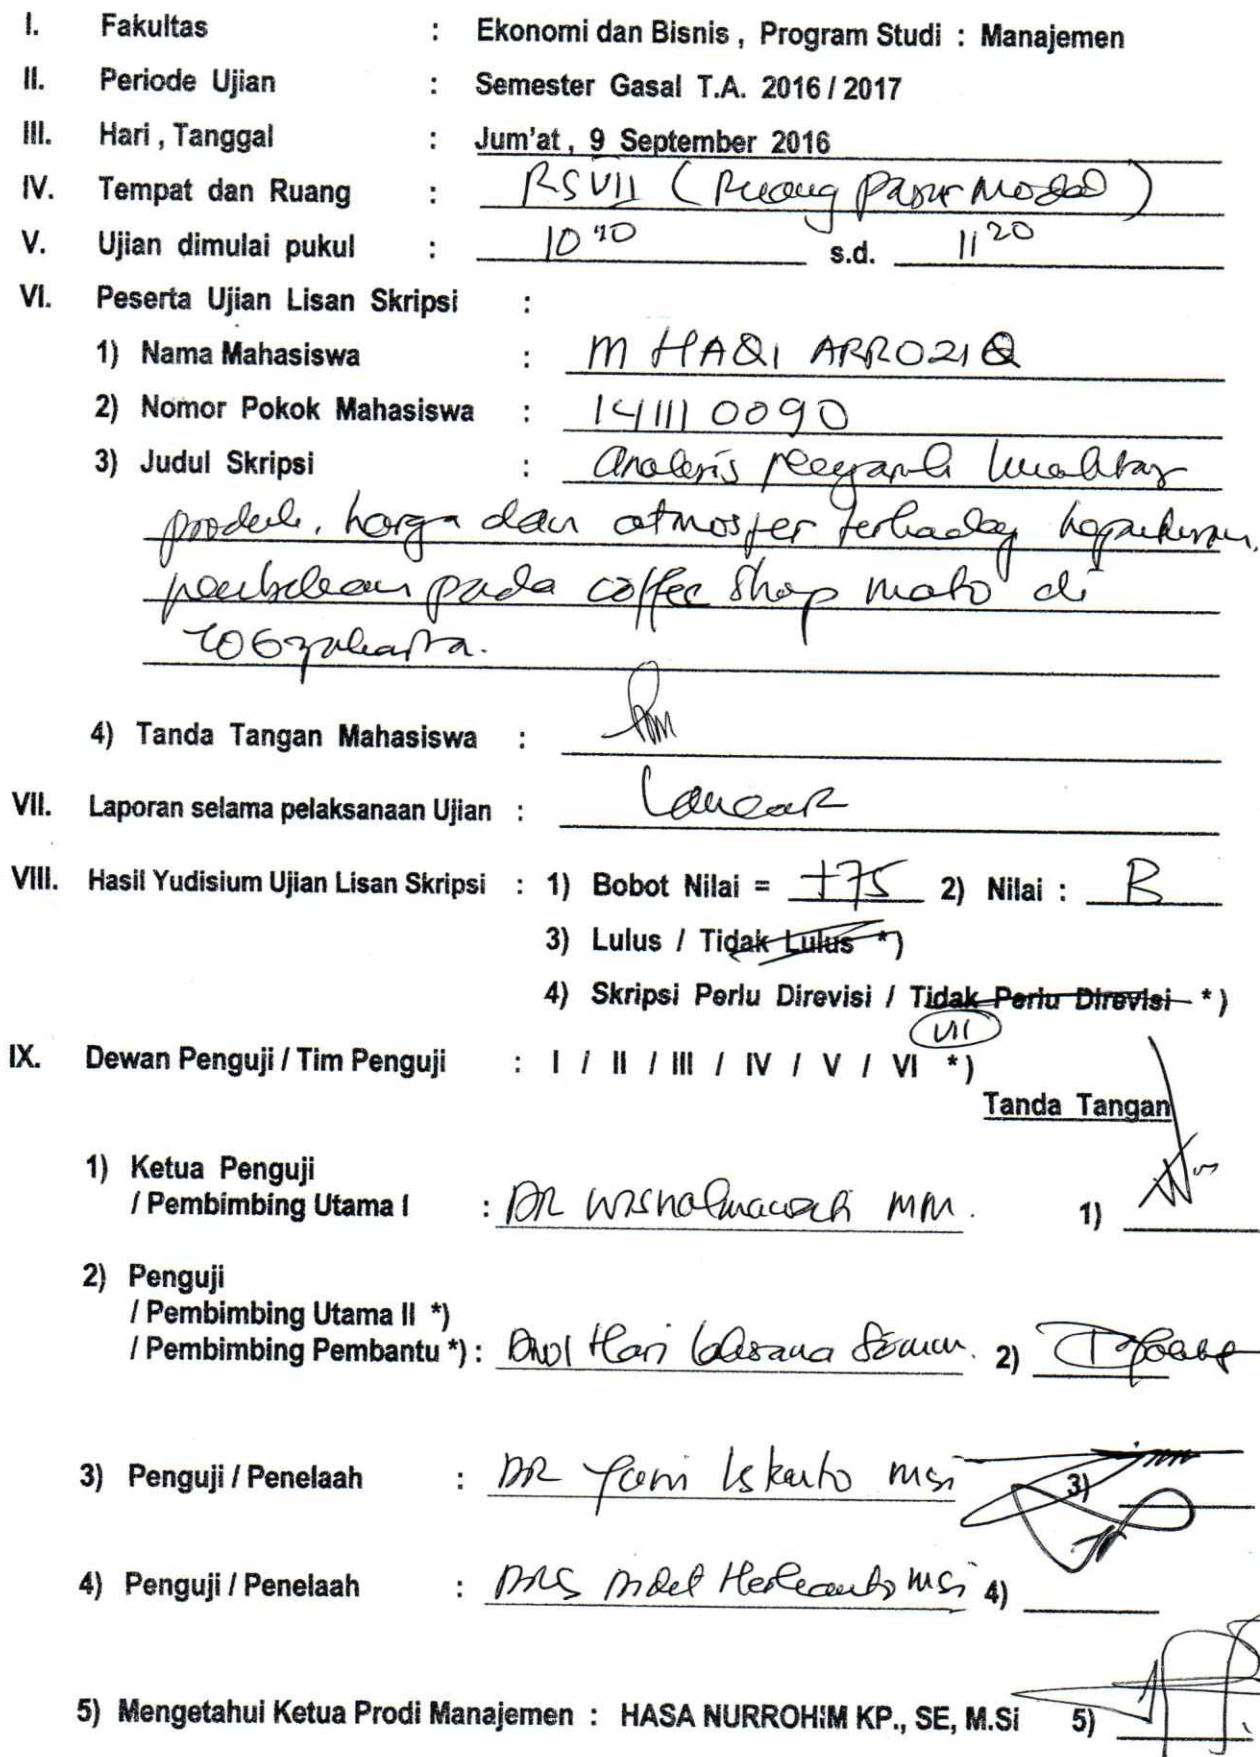 I. Fakultas : Ekonomi dan Bisnis , Program Studi : Manajemen
II. Periode Ujian : Semester Gasal T.A. 2016 / 2017
III. Hari , Tanggal : Jum'at , 9 September 2016
IV. Tempat dan Ruang : RSVII ( Ruang Pasar Modal )
V. Ujian dimulai pukul : 10 s.d. 11 20
VI. Peserta Ujian Lisan Skripsi :
1) Nama Mahasiswa : M HAQI ARROZIQ
2) Nomor Pokok Mahasiswa : 141110090
3) Judul Skripsi : Analisis pengaruh kualitas
produk, harga dan atmosfer terhadap keputusan
pembelian pada coffee shop mato di
YOGyakarta.
4) Tanda Tangan Mahasiswa :
VII. Laporan selama pelaksanaan Ujian : Lancar
VIII. Hasil Yudisium Ujian Lisan Skripsi : 1) Bobot Nilai = +75 2) Nilai : B
3) Lulus / Tidak Lulus *)
4) Skripsi Perlu Direvisi / Tidak Perlu Direvisi *)
VII
IX. Dewan Penguji / Tim Penguji : I / II / III / IV / V / VI *)
Tanda Tangan
1) Ketua Penguji
/ Pembimbing Utama I : DR MM. 1)
2) Penguji
/ Pembimbing Utama II *)
/ Pembimbing Pembantu *) : Hari 2)
3) Penguji / Penelaah : DR Yuni Iskanto MSi 3)
4) Penguji / Penelaah : DRS MSi 4)
5) Mengetahui Ketua Prodi Manajemen : HASA NURROHIM KP., SE, M.Si 5)